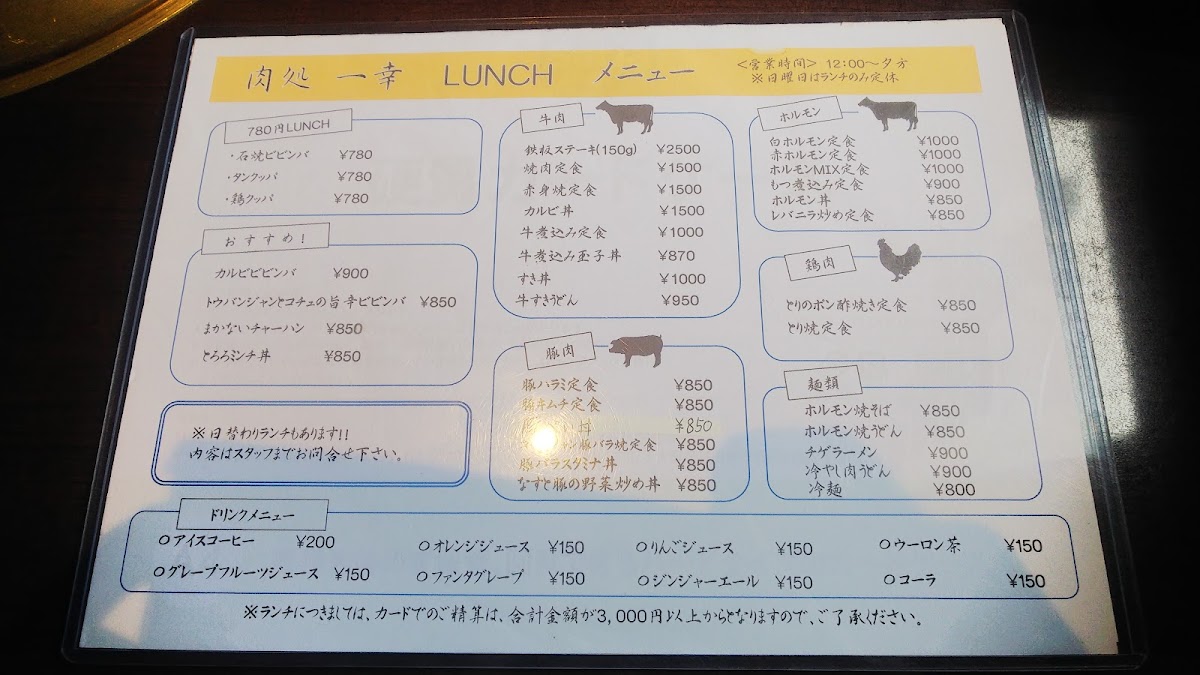 肉処 一幸 LUNCH メニュー
<営業時間> 12:00〜夕方
※日曜日はランチのみ定休
780円LUNCH
・石焼ビビンバ ¥780
・タンクッパ ¥780
・鶏クッパ ¥780
おすすめ!
カルビビビンバ ¥900
トウバンジャンとコチュの旨辛ビビンバ ¥850
まかないチャーハン ¥850
とろろミンチ丼 ¥850
※日替わりランチもあります!!
内容はスタッフまでお問合せ下さい。
牛肉
鉄板ステーキ(150g) ¥2500
焼肉定食 ¥1500
赤身焼定食 ¥1500
カルビ丼 ¥1500
牛煮込み定食 ¥1000
牛煮込み玉子丼 ¥870
すき丼 ¥1000
牛すきうどん ¥950
豚肉
豚ハラミ定食 ¥850
豚キムチ定食 ¥850
丼 ¥850
豚バラ焼定食 ¥850
豚バラスタミナ丼 ¥850
なすと豚の野菜炒め丼 ¥850
ホルモン
白ホルモン定食 ¥1000
赤ホルモン定食 ¥1000
ホルモンMIX定食 ¥1000
もつ煮込み定食 ¥900
ホルモン丼 ¥850
レバニラ炒め定食 ¥850
鶏肉
とりのポン酢焼き定食 ¥850
とり焼定食 ¥850
麺類
ホルモン焼そば ¥850
ホルモン焼うどん ¥850
チゲラーメン ¥900
冷やし肉うどん ¥900
冷麺 ¥800
ドリンクメニュー
○アイスコーヒー ¥200 ○オレンジジュース ¥150 ○りんごジュース ¥150 ○ウーロン茶 ¥150
○グレープフルーツジュース ¥150 ○ファンタグレープ ¥150 ○ジンジャーエール ¥150 ○コーラ ¥150
※ランチにつきましては、カードでのご精算は、合計金額が3,000円以上からとなりますので、ご了承ください。